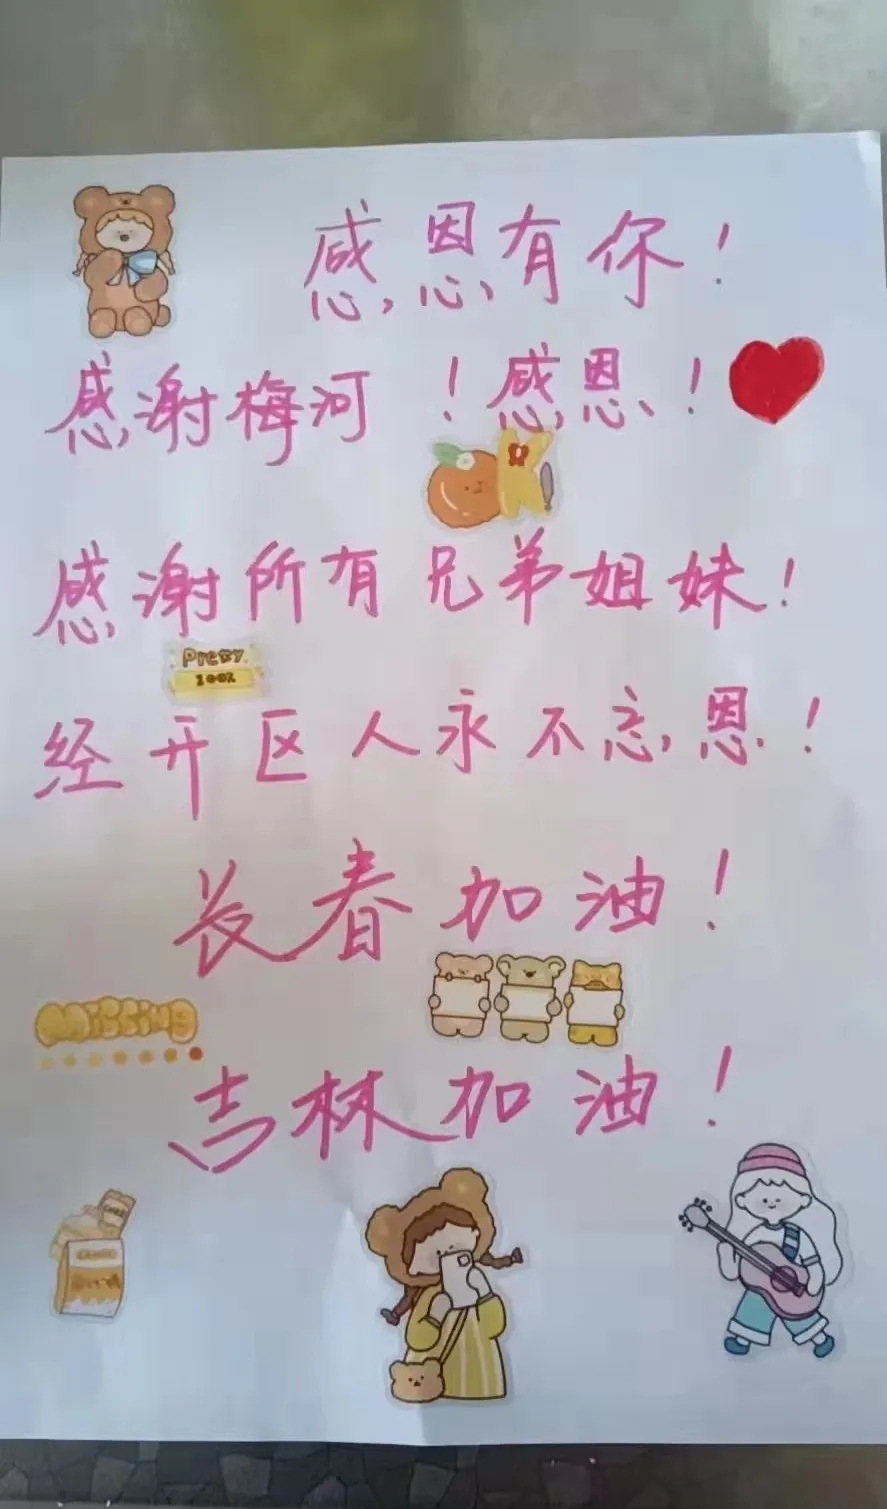 感恩有你！
感谢梅河！感恩！
感谢所有兄弟姐妹！
Pretty
100%
经开区人永不忘恩！
长春加油！
Missing
吉林加油！